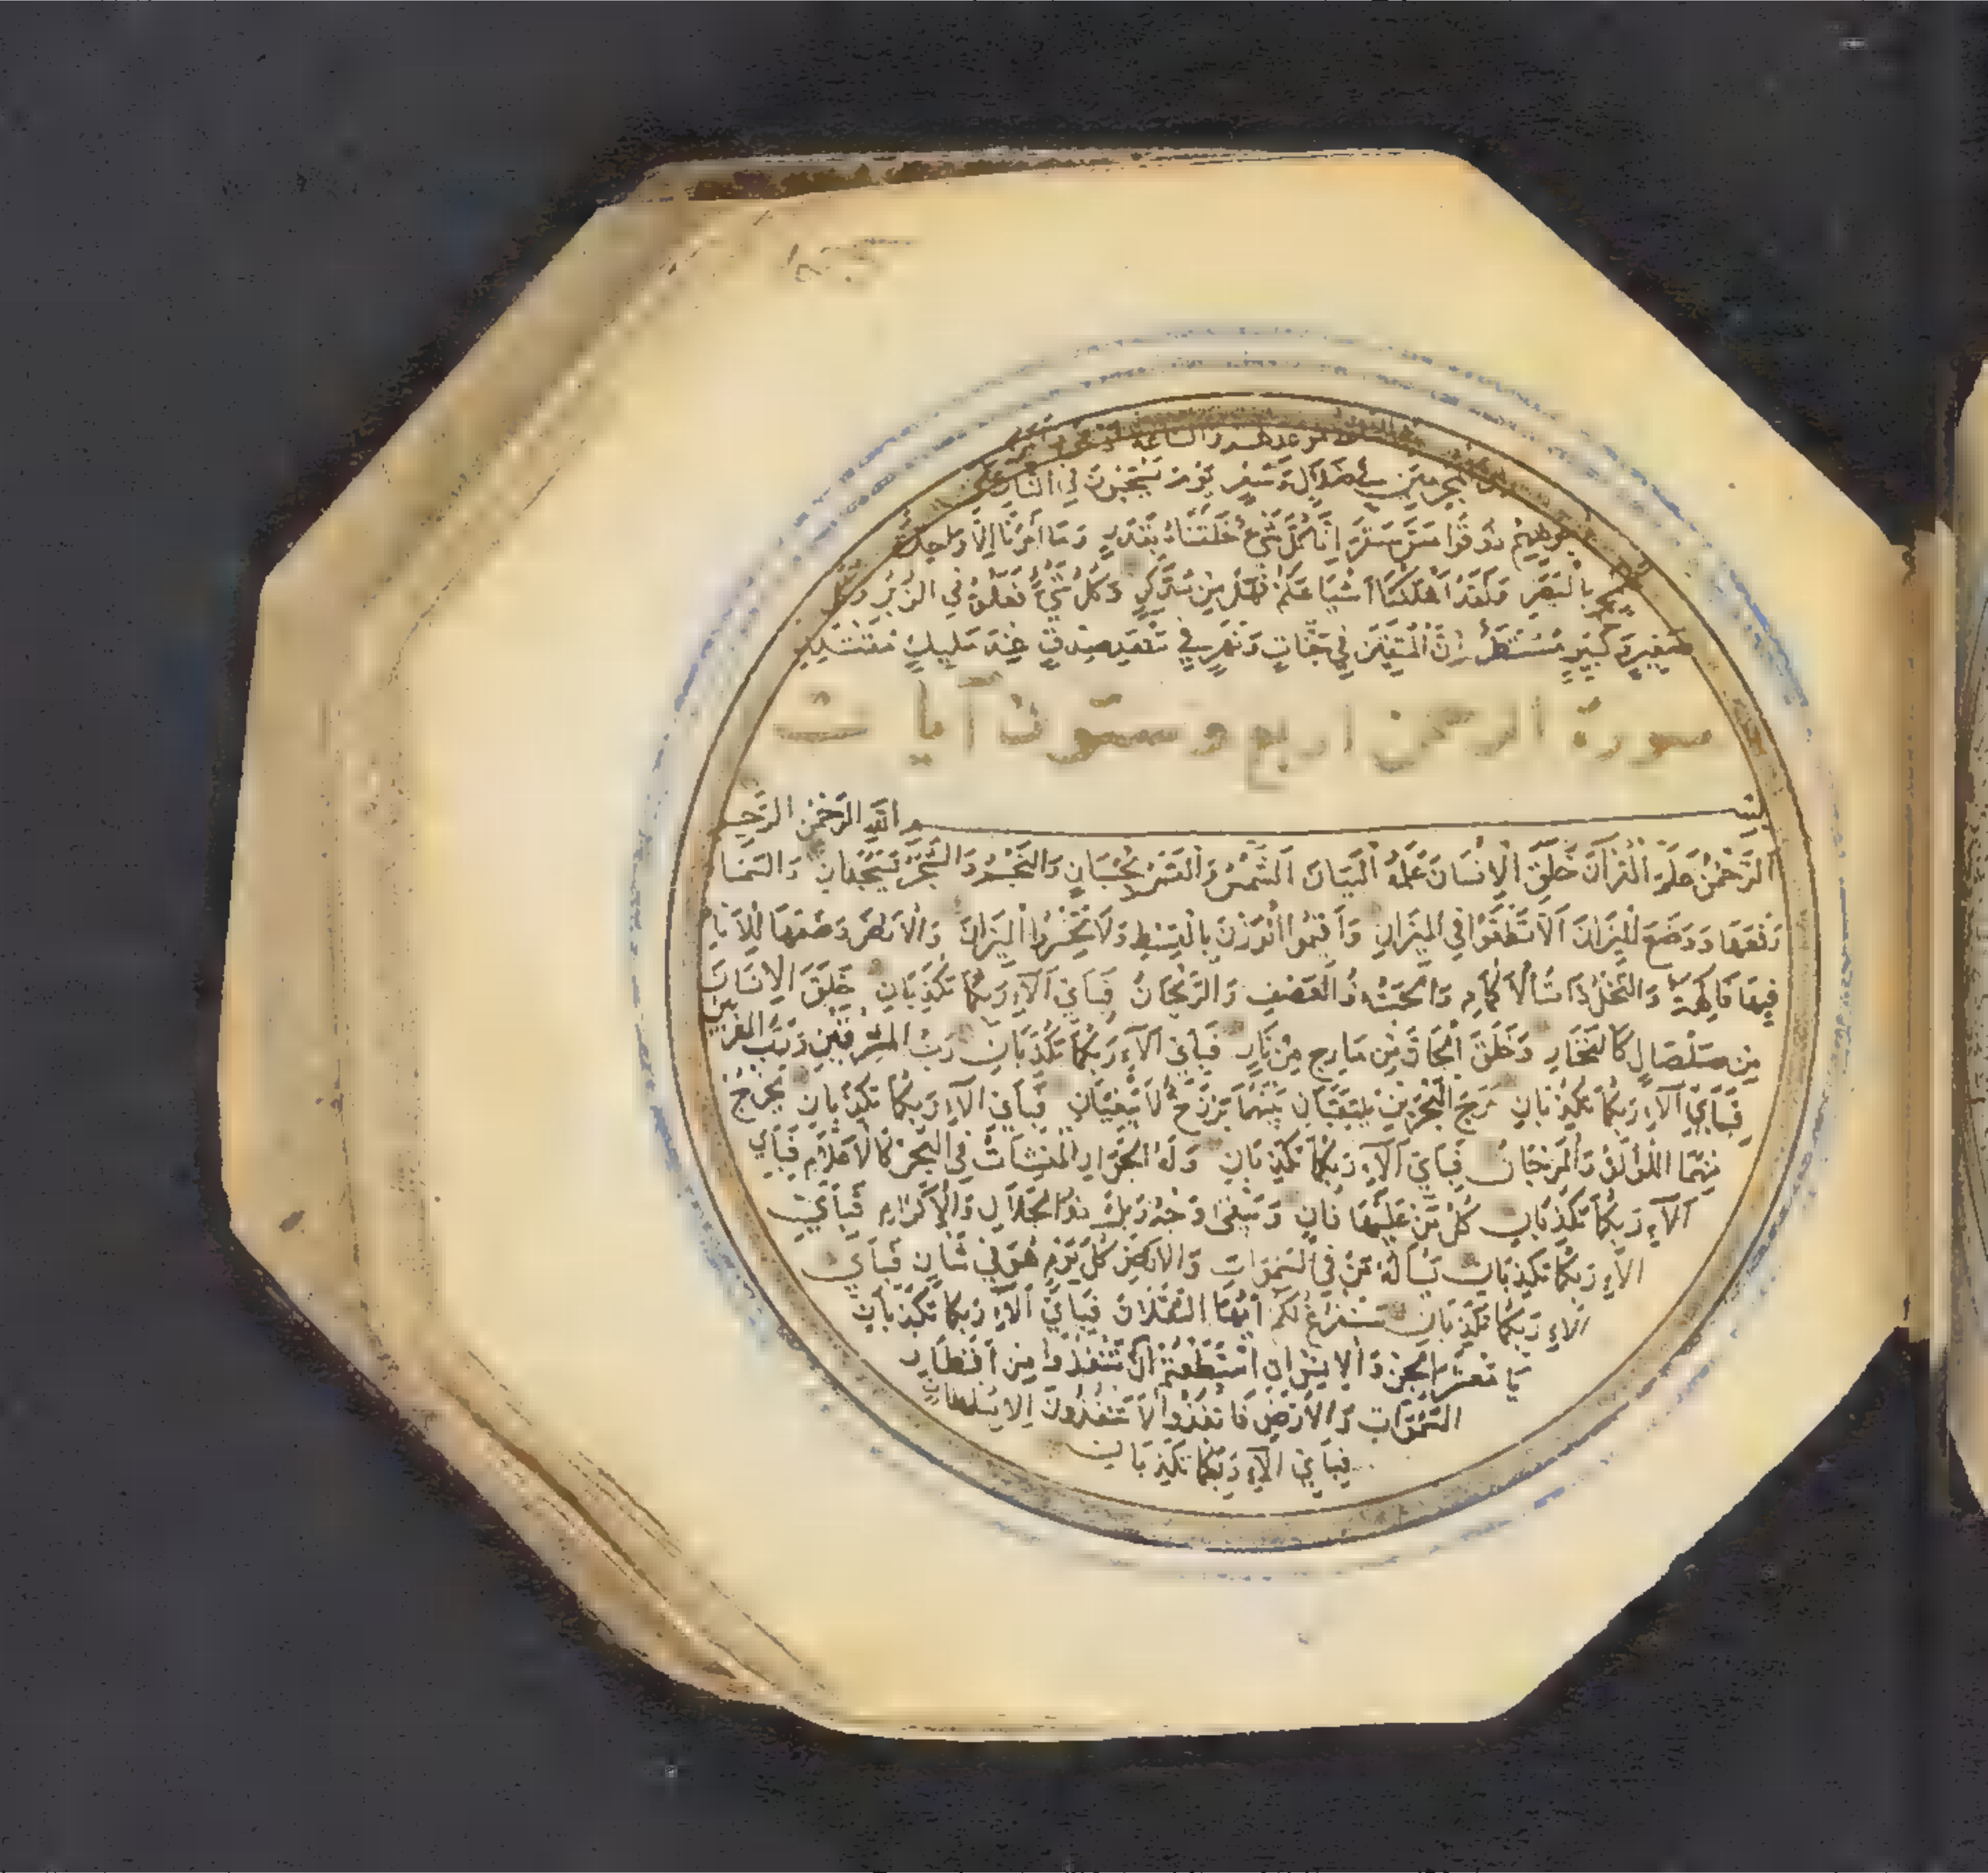 موعدهم والساعة
المجرمين في ضلال وسعر يوم يسحبون في النار على
وجوههم ذوقوا مس سقر انا كل شيء خلقناه بقدر وما امرنا الا واحدة
بالبصر ولقد اهلكنا اشياعكم فهل من مدكر وكل شيء فعلوه في الزبر وكل
صغير وكبير مستطر ان المتقين في جنات ونهر في مقعد صدق عند مليك مقتدر
سورة الرحمن اربع وستون آيات
بسم الله الرحمن الرحيم
الرَّحْمٰنُ عَلَّمَ الْقُرْآنَ خَلَقَ الْاِنْسَانَ عَلَّمَهُ الْبَيَانَ اَلشَّمْسُ وَالْقَمَرُ بِحُسْبَانٍ وَالنَّجْمُ وَالشَّجَرُ يَسْجُدَانِ وَالسَّمَا
رَفَعَهَا وَوَضَعَ الْمِيزَانَ اَلَّا تَطْغَوْا فِي الْمِيزَانِ وَاَقِيمُوا الْوَزْنَ بِالْقِسْطِ وَلَا تُخْسِرُوا الْمِيزَانَ وَالْاَرْضَ وَضَعَهَا لِلْاَنَامِ
فِيهَا فَاكِهَةٌ وَالنَّخْلُ ذَاتُ الْاَكْمَامِ وَالْحَبُّ ذُو الْعَصْفِ وَالرَّيْحَانُ فَبِاَيِّ اٰلَآءِ رَبِّكُمَا تُكَذِّبَانِ خَلَقَ الْاِنْسَانَ
مِنْ صَلْصَالٍ كَالْفَخَّارِ وَخَلَقَ الْجَانَّ مِنْ مَارِجٍ مِنْ نَارٍ فَبِاَيِّ اٰلَآءِ رَبِّكُمَا تُكَذِّبَانِ رَبُّ الْمَشْرِقَيْنِ وَرَبُّ الْمَغْرِبَيْنِ
فَبِاَيِّ اٰلَآءِ رَبِّكُمَا تُكَذِّبَانِ مَرَجَ الْبَحْرَيْنِ يَلْتَقِيَانِ بَيْنَهُمَا بَرْزَخٌ لَا يَبْغِيَانِ فَبِاَيِّ اٰلَآءِ رَبِّكُمَا تُكَذِّبَانِ يَخْرُجُ
مِنْهُمَا اللُّؤْلُؤُ وَالْمَرْجَانُ فَبِاَيِّ اٰلَآءِ رَبِّكُمَا تُكَذِّبَانِ وَلَهُ الْجَوَارِ الْمُنْشَاٰتُ فِي الْبَحْرِ كَالْاَعْلَامِ فَبِاَيِّ
اٰلَآءِ رَبِّكُمَا تُكَذِّبَانِ كُلُّ مَنْ عَلَيْهَا فَانٍ وَيَبْقَى وَجْهُ رَبِّكَ ذُو الْجَلَالِ وَالْاِكْرَامِ فَبِاَيِّ
اٰلَآءِ رَبِّكُمَا تُكَذِّبَانِ يَسْاَلُهُ مَنْ فِي السَّمٰوَاتِ وَالْاَرْضِ كُلَّ يَوْمٍ هُوَ فِي شَاْنٍ فَبِاَيِّ
اٰلَآءِ رَبِّكُمَا تُكَذِّبَانِ سَنَفْرُغُ لَكُمْ اَيُّهَا الثَّقَلَانِ فَبِاَيِّ اٰلَآءِ رَبِّكُمَا تُكَذِّبَانِ
يَا مَعْشَرَ الْجِنِّ وَالْاِنْسِ اِنِ اسْتَطَعْتُمْ اَنْ تَنْفُذُوا مِنْ اَقْطَارِ
السَّمٰوَاتِ وَالْاَرْضِ فَانْفُذُوا لَا تَنْفُذُونَ اِلَّا بِسُلْطَانٍ
فَبِاَيِّ اٰلَآءِ رَبِّكُمَا تُكَذِّبَانِ